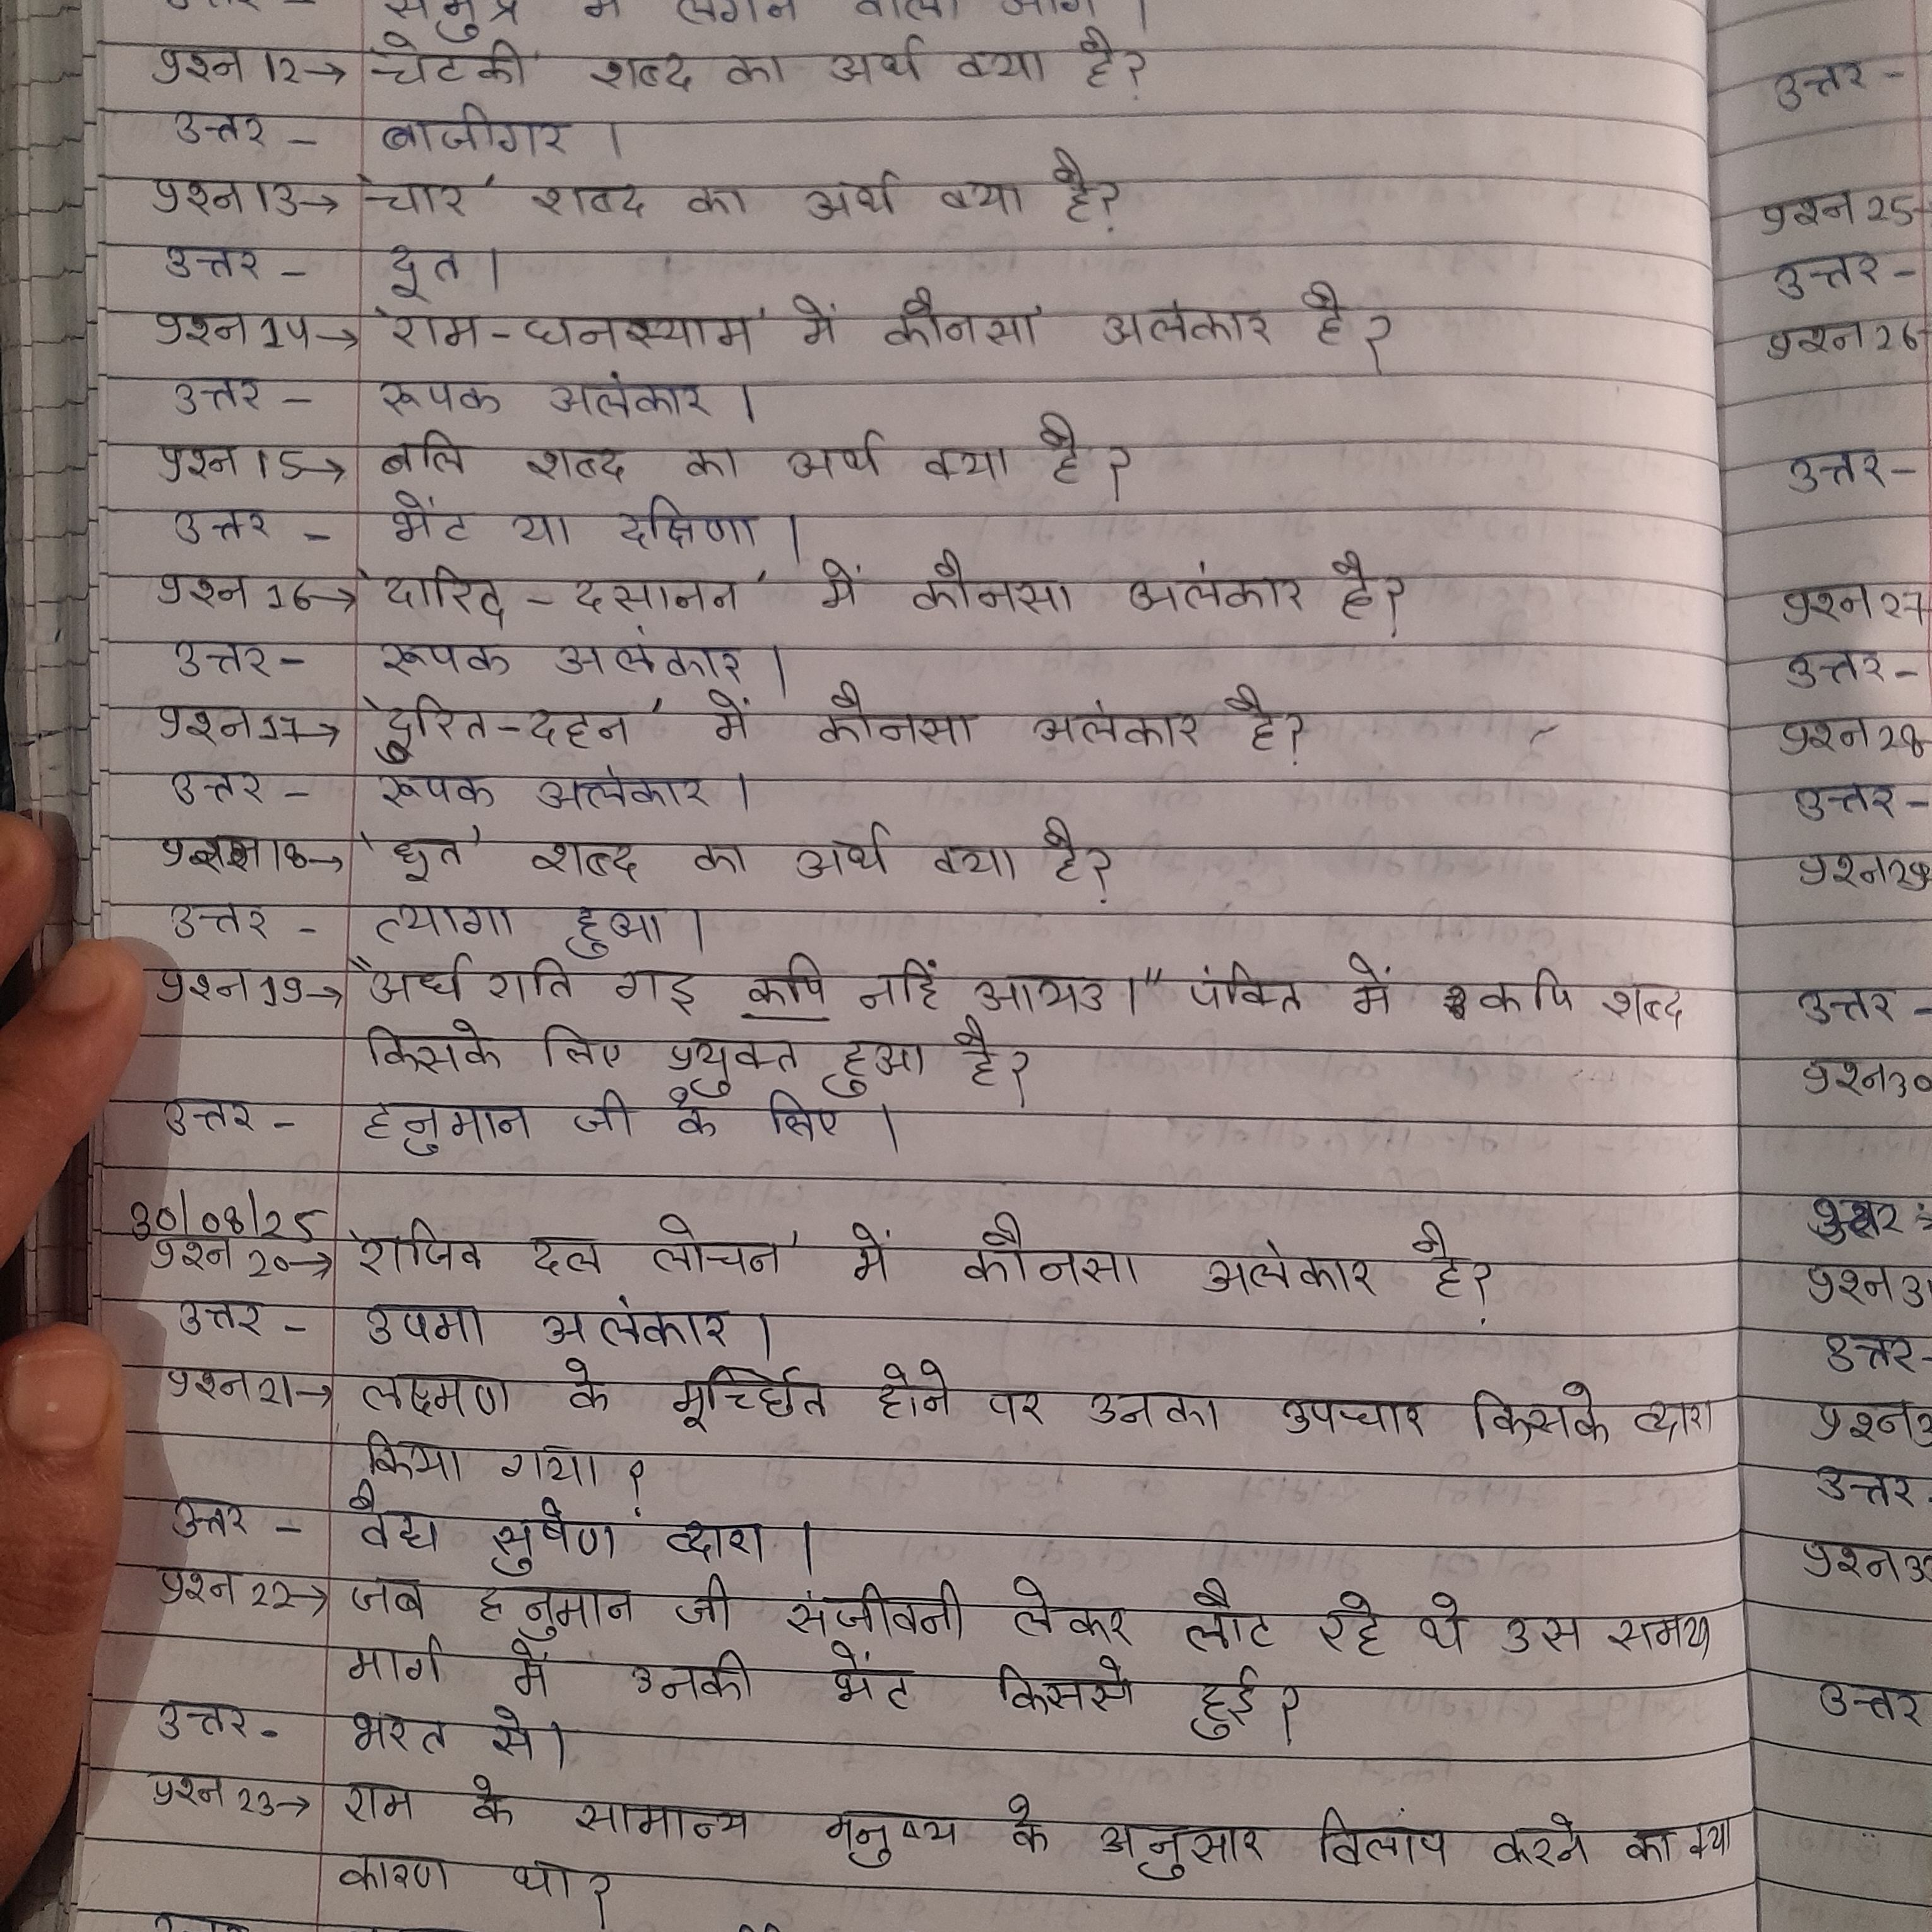 उत्तर - समुद्र में लगने वाली आग।
प्रश्न 12→ 'चेटकी' शब्द का अर्थ क्या है?
उत्तर - बाजीगर।
प्रश्न 13→ 'चार' शब्द का अर्थ क्या है?
उत्तर - दूत।
प्रश्न 14→ 'राम-घनश्याम' में कौनसा अलंकार है?
उत्तर - रूपक अलंकार।
प्रश्न 15→ बलि शब्द का अर्थ क्या है?
उत्तर - भेंट या दक्षिणा।
प्रश्न 16→ 'दारिद-दसानन' में कौनसा अलंकार है?
उत्तर - रूपक अलंकार।
प्रश्न 17→ 'दुरित-दहन' में कौनसा अलंकार है?
उत्तर - रूपक अलंकार।
18→ 'धूत' शब्द का अर्थ क्या है?
उत्तर - त्यागा हुआ।
प्रश्न 19→ "अर्ध राति गइ कपि नहिं आयउ।" पंक्ति में कपि शब्द
किसके लिए प्रयुक्त हुआ है?
उत्तर - हनुमान जी के लिए।
30/08/25
प्रश्न 20→ 'राजिव दल लोचन' में कौनसा अलंकार है?
उत्तर - उपमा अलंकार।
प्रश्न 21→ लक्ष्मण के मूर्च्छित होने पर उनका उपचार किसके द्वारा
किया गया?
उत्तर - वैद्य सुषेण द्वारा।
प्रश्न 22→ जब हनुमान जी संजीवनी लेकर लौट रहे थे उस समय
मार्ग में उनकी भेंट किससे हुई?
उत्तर - भरत से।
प्रश्न 23→ राम के सामान्य मनुष्य के अनुसार विलाप करने का क्या
कारण था?
उत्तर -
प्रश्न 25
उत्तर -
प्रश्न 26
उत्तर -
प्रश्न 27
उत्तर -
प्रश्न 28
उत्तर -
प्रश्न 29
उत्तर -
प्रश्न 30
उत्तर -
प्रश्न
उत्तर
प्रश्न
उत्तर